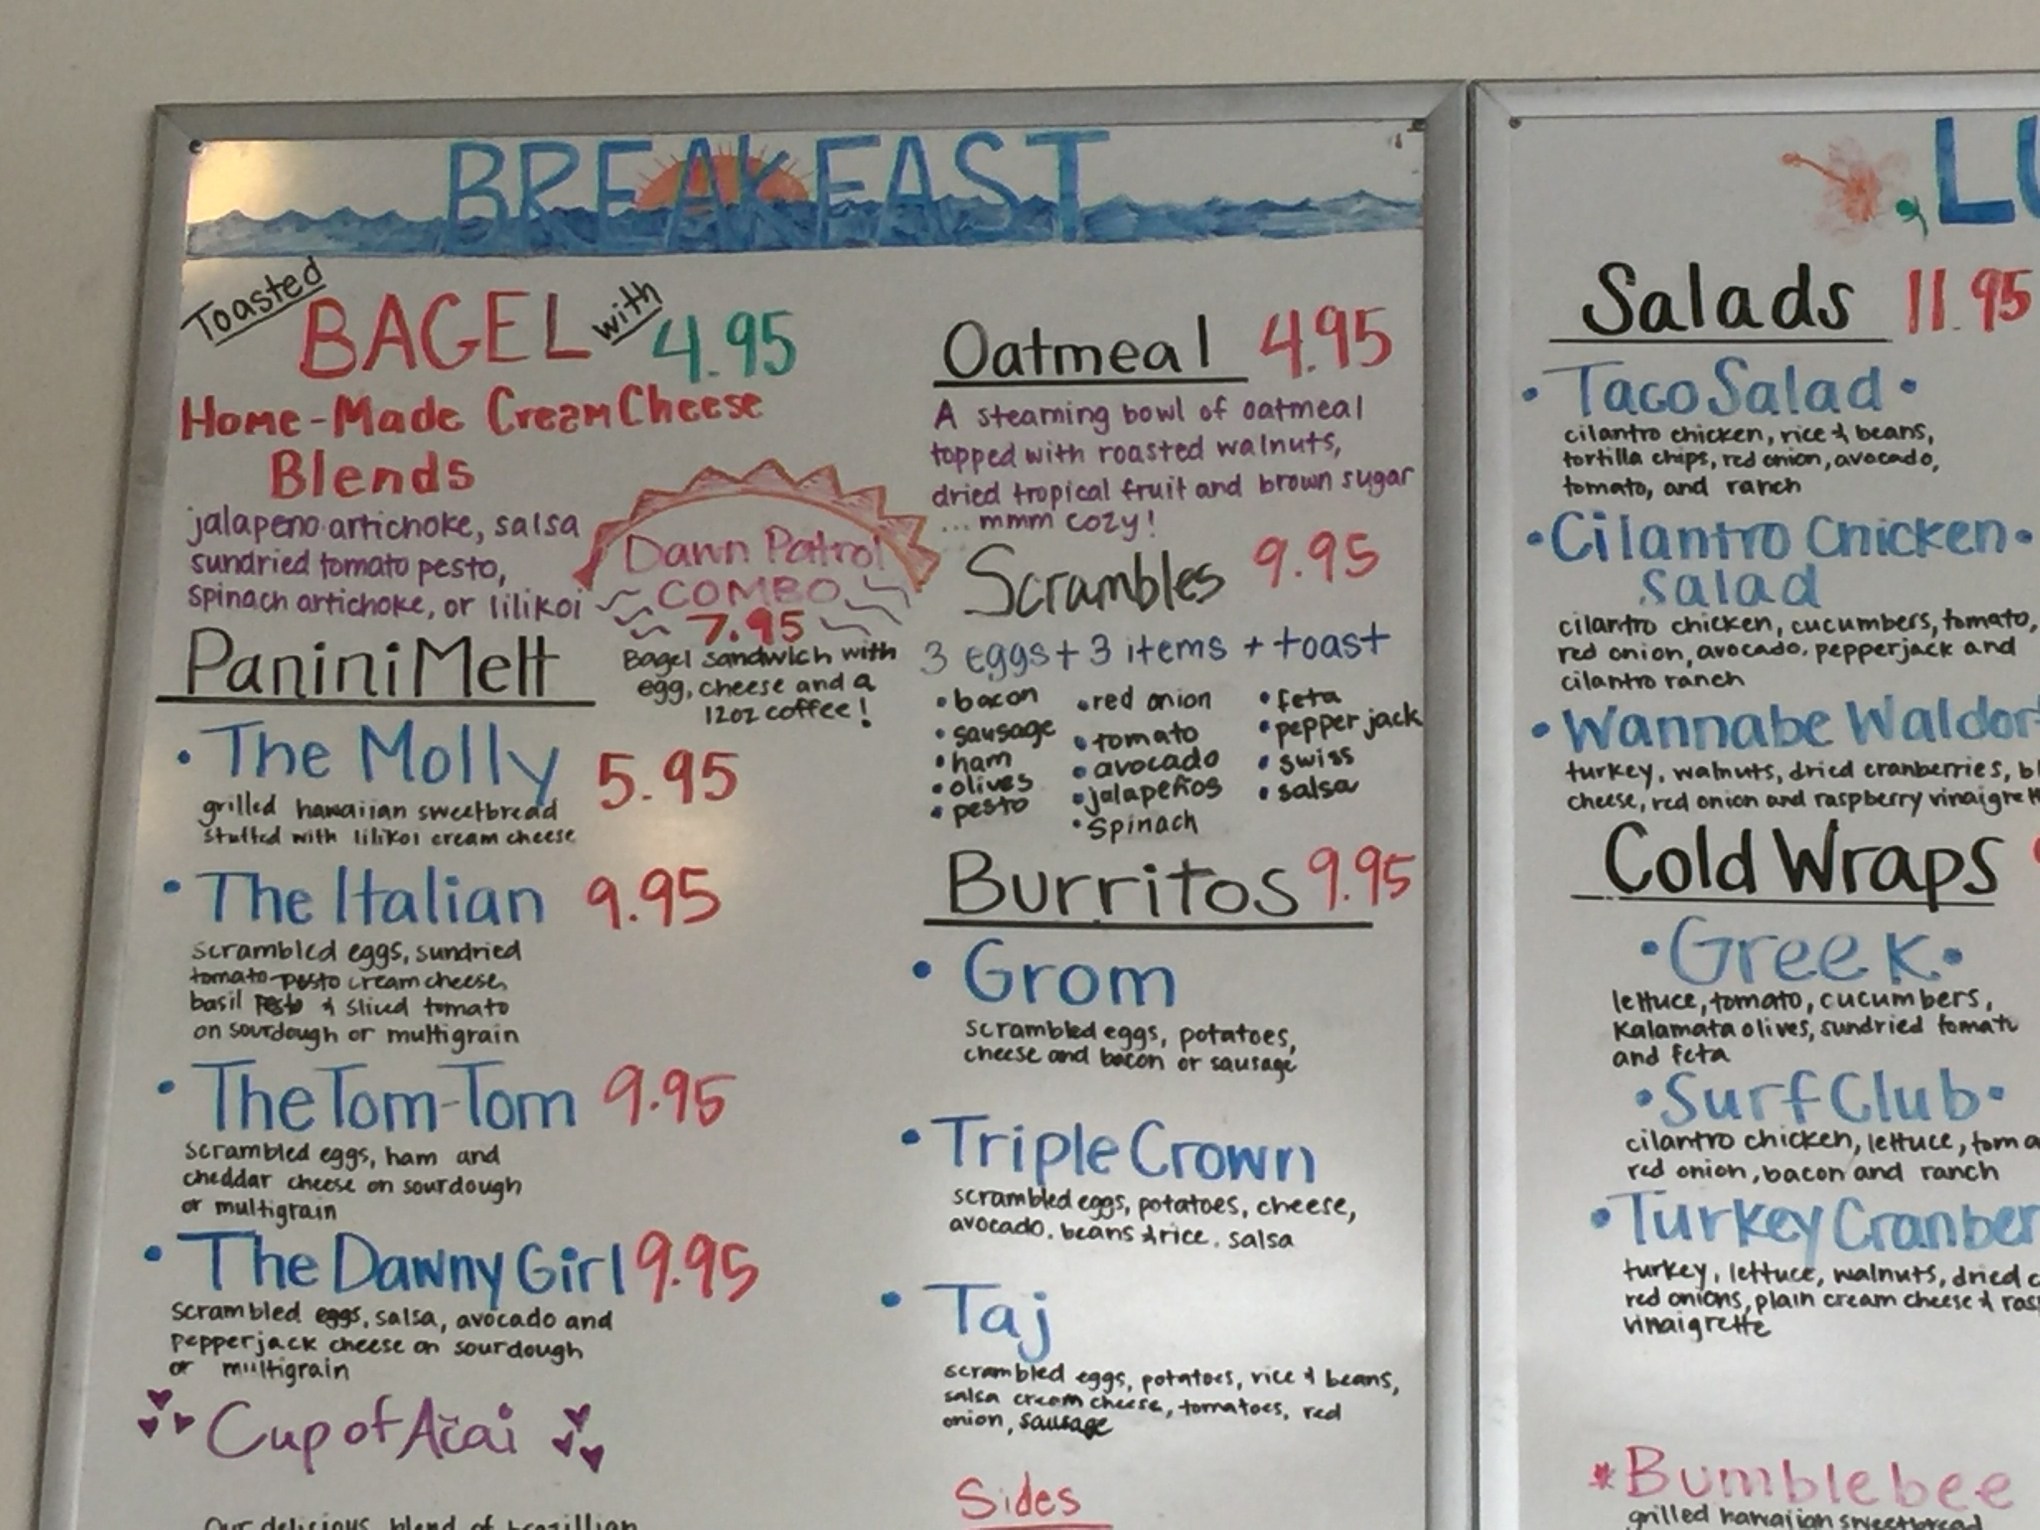 BREAKFAST
Toasted
BAGEL with 4.95
Home-Made Cream Cheese
Blends
jalapeno artichoke, salsa
sundried tomato pesto,
spinach artichoke, or lilikoi
Dawn Patrol
COMBO
7.95
Bagel sandwich with
egg, cheese and a
12oz coffee!
Panini Melt
• The Molly 5.95
grilled hawaiian sweetbread
stuffed with lilikoi cream cheese
• The Italian 9.95
scrambled eggs, sundried
tomato pesto cream cheese,
basil pesto & sliced tomato
on sourdough or multigrain
• The Tom-Tom 9.95
scrambled eggs, ham and
cheddar cheese on sourdough
or multigrain
• The Dawny Girl 9.95
scrambled eggs, salsa, avocado and
pepperjack cheese on sourdough
or multigrain
Cup of Acai
Our delicious blend of brazillian
Oatmeal 4.95
A steaming bowl of oatmeal
topped with roasted walnuts,
dried tropical fruit and brown sugar
... mmm cozy!
Scrambles 9.95
3 eggs + 3 items + toast
• bacon
• sausage
• ham
• olives
• pesto
• red onion
• tomato
• avocado
• jalapeños
• spinach
• feta
• pepper jack
• swiss
• salsa
Burritos 9.95
• Grom
scrambled eggs, potatoes,
cheese and bacon or sausage
• Triple Crown
scrambled eggs, potatoes, cheese,
avocado, beans & rice, salsa
• Taj
scrambled eggs, potatoes, rice & beans,
salsa cream cheese, tomatoes, red
onion, sausage
Sides
Salads 11.95
• Taco Salad •
cilantro chicken, rice & beans,
tortilla chips, red onion, avocado,
tomato, and ranch
• Cilantro Chicken •
Salad
cilantro chicken, cucumbers, tomato,
red onion, avocado, pepperjack and
cilantro ranch
• Wannabe Waldor
turkey, walnuts, dried cranberries,
cheese, red onion and raspberry
Cold Wraps
• Greek •
lettuce, tomato, cucumbers,
Kalamata olives, sundried
and feta
• Surf Club •
cilantro chicken, lettuce,
red onion, bacon and ranch
• Turkey
turkey, lettuce, walnuts, dried
red onions, plain cream cheese &
vinaigrette
* Bumblebee
grilled hawaiian sweetbread